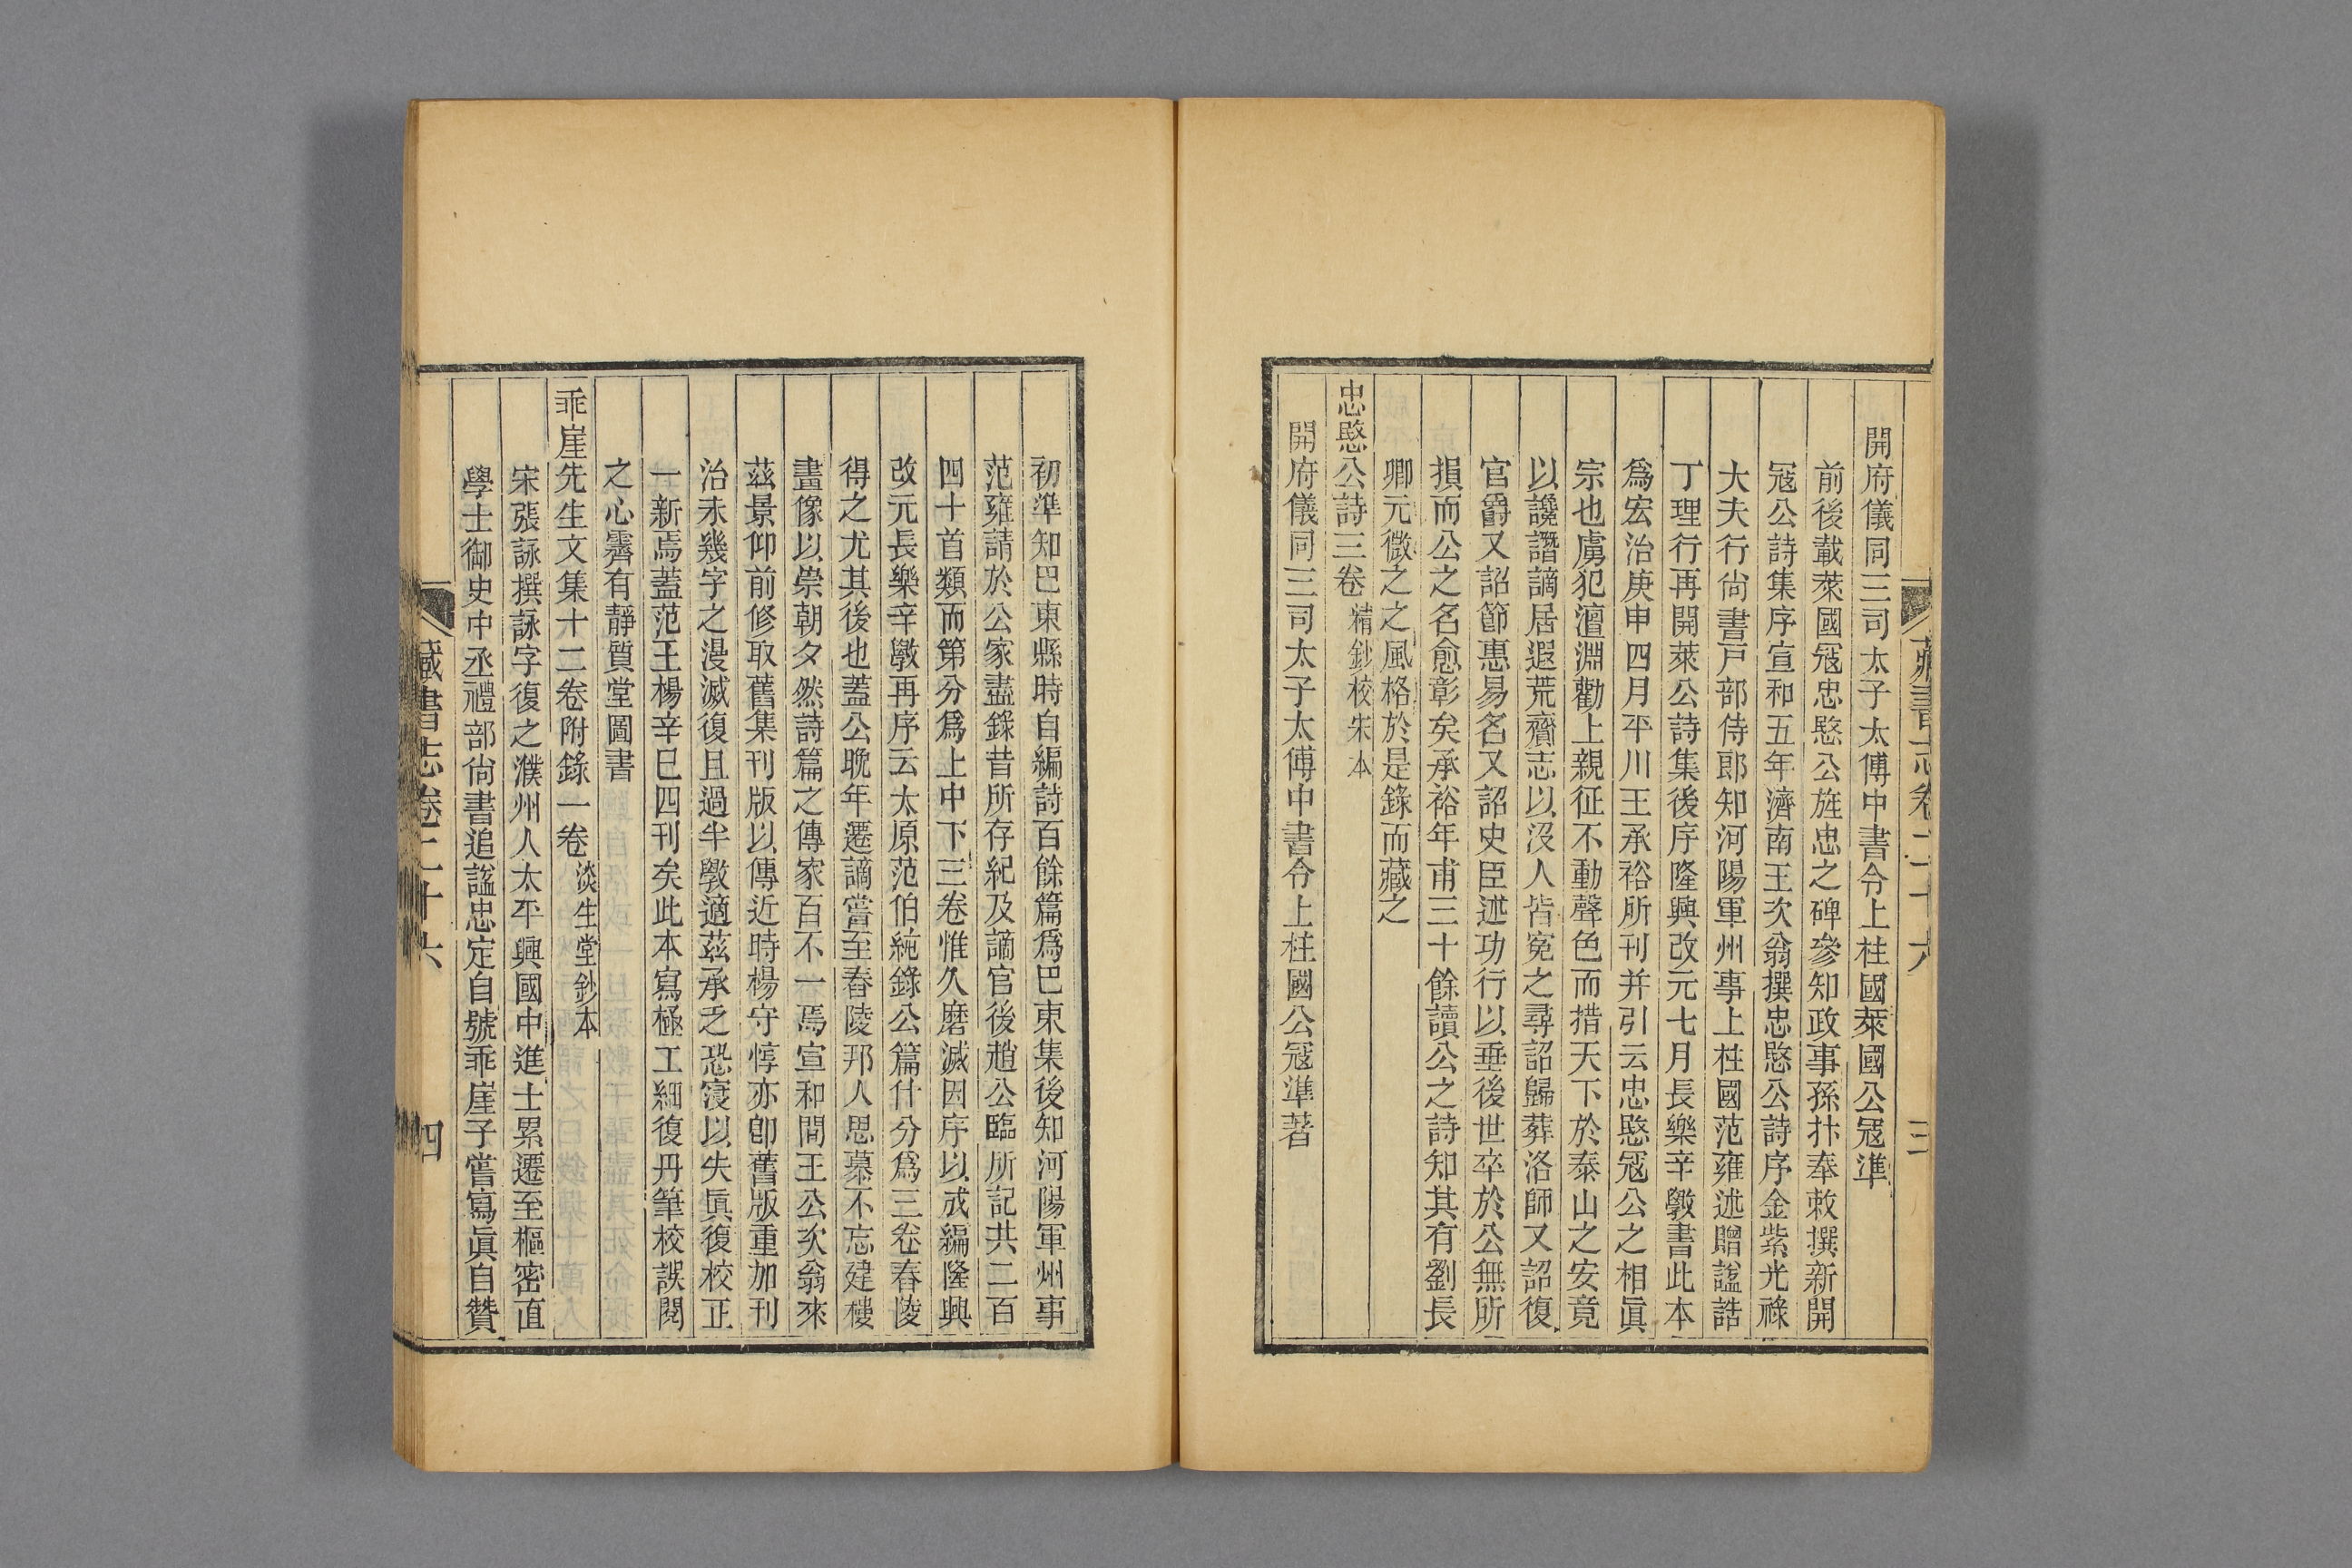 藏書志卷二十六
三
開府儀同三司太子太傅中書令上柱國萊國公冦準
前後載萊國冦忠愍公旌忠之碑參知政事孫抃奉敕撰新開
冦公詩集序宣和五年濟南王次翁撰忠愍公詩序金紫光祿
大夫行尚書戸部侍郎知河陽軍州事上柱國范雍述贈諡誥
丁理行再開萊公詩集後序隆興改元七月長樂辛斅書此本
爲宏治庚申四月平川王承裕所刊并引云忠愍冦公之相眞
宗也虜犯澶淵勸上親征不動聲色而措天下於泰山之安竟
以讒譖謫居遐荒齎志以沒人皆寃之尋詔歸葬洛師又詔復
官爵又詔節惠易名又詔史臣述功行以垂後世卒於公無所
損而公之名愈彰矣承裕年甫三十餘讀公之詩知其有劉長
卿元微之之風格於是錄而藏之
忠愍公詩三卷 精鈔校宋本
開府儀同三司太子太傅中書令上柱國公冦準著
初準知巴東縣時自編詩百餘篇爲巴東集後知河陽軍州事
范雍請於公家盡錄昔所存紀及謫官後趙公臨所記共二百
四十首類而第分爲上中下三卷惟久磨滅因序以成編隆興
改元長樂辛斅再序云太原范伯純錄公篇什分爲三卷舂陵
得之尤其後也蓋公晩年遷謫嘗至舂陵邦人思慕不忘建樓
畫像以崇朝夕然詩篇之傳家百不一焉宣和間王公次翁來
茲景仰前修取舊集刊版以傳近時楊守惇亦卽舊版重加刊
治未幾字之漫滅復且過半斅適茲承乏恐寖以失眞復校正
一新焉蓋范王楊辛巳四刊矣此本寫極工細復丹筆校誤閱
之心霽有靜質堂圖書
乖崖先生文集十二卷附錄一卷 淡生堂鈔本
宋張詠撰詠字復之濮州人太平興國中進士累遷至樞密直
學士御史中丞禮部尚書追諡忠定自號乖崖子嘗寫眞自贊
藏書志卷二十六
四